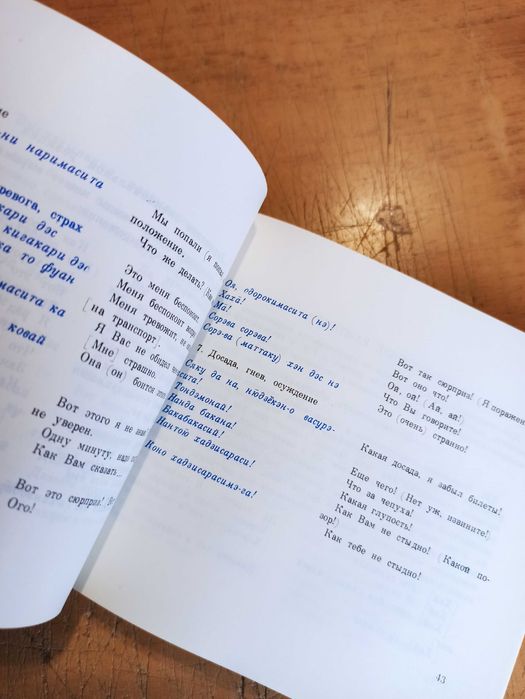 ие
ни наримасита
ревога, страх
кари дэс
кигакари дэс
ка то фуан
масита ка
ковай
Мы попали
положение.
Что же делать?
Это меня беспокоит.
Меня беспокоит
Меня тревожит,
[на транспорт].
Я Вас не обидел
[Мне] страшно.
Она (он) боится
Вот этого я не
не уверен.
Одну минуту,
Как Вам сказать...
Вот это сюрприз!
Ого!
Оя, одорокимасита (нэ)!
Хаха!
Ма!
Сорэва сорэва!
Сорэ-ва (маттаку) хэн дэс нэ
г. Досада, гнев, осуждение
Сяку да на, нюдзёкэн-о васурэ-
сита!
Тондэмонай!
Нанда бакана!
Бакабакасий!
Нантою хадзисараси!
Коно хадзисарасимэ-га!
Вот так сюрприз! (Я поражен
Вот оно что!
Ой, ой! (Ай, ай!)
Что Вы говорите!
Это (очень) странно!
Какая досада, я забыл билеты!
Еще чего! (Нет уж, извините!)
Что за чепуха!
Какая глупость!
Как Вам не стыдно! (Какой по-
зор!)
Как тебе не стыдно!
43